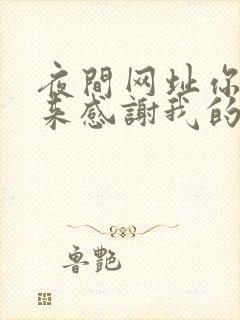 夜間网址你
来感謝我的
魯艷